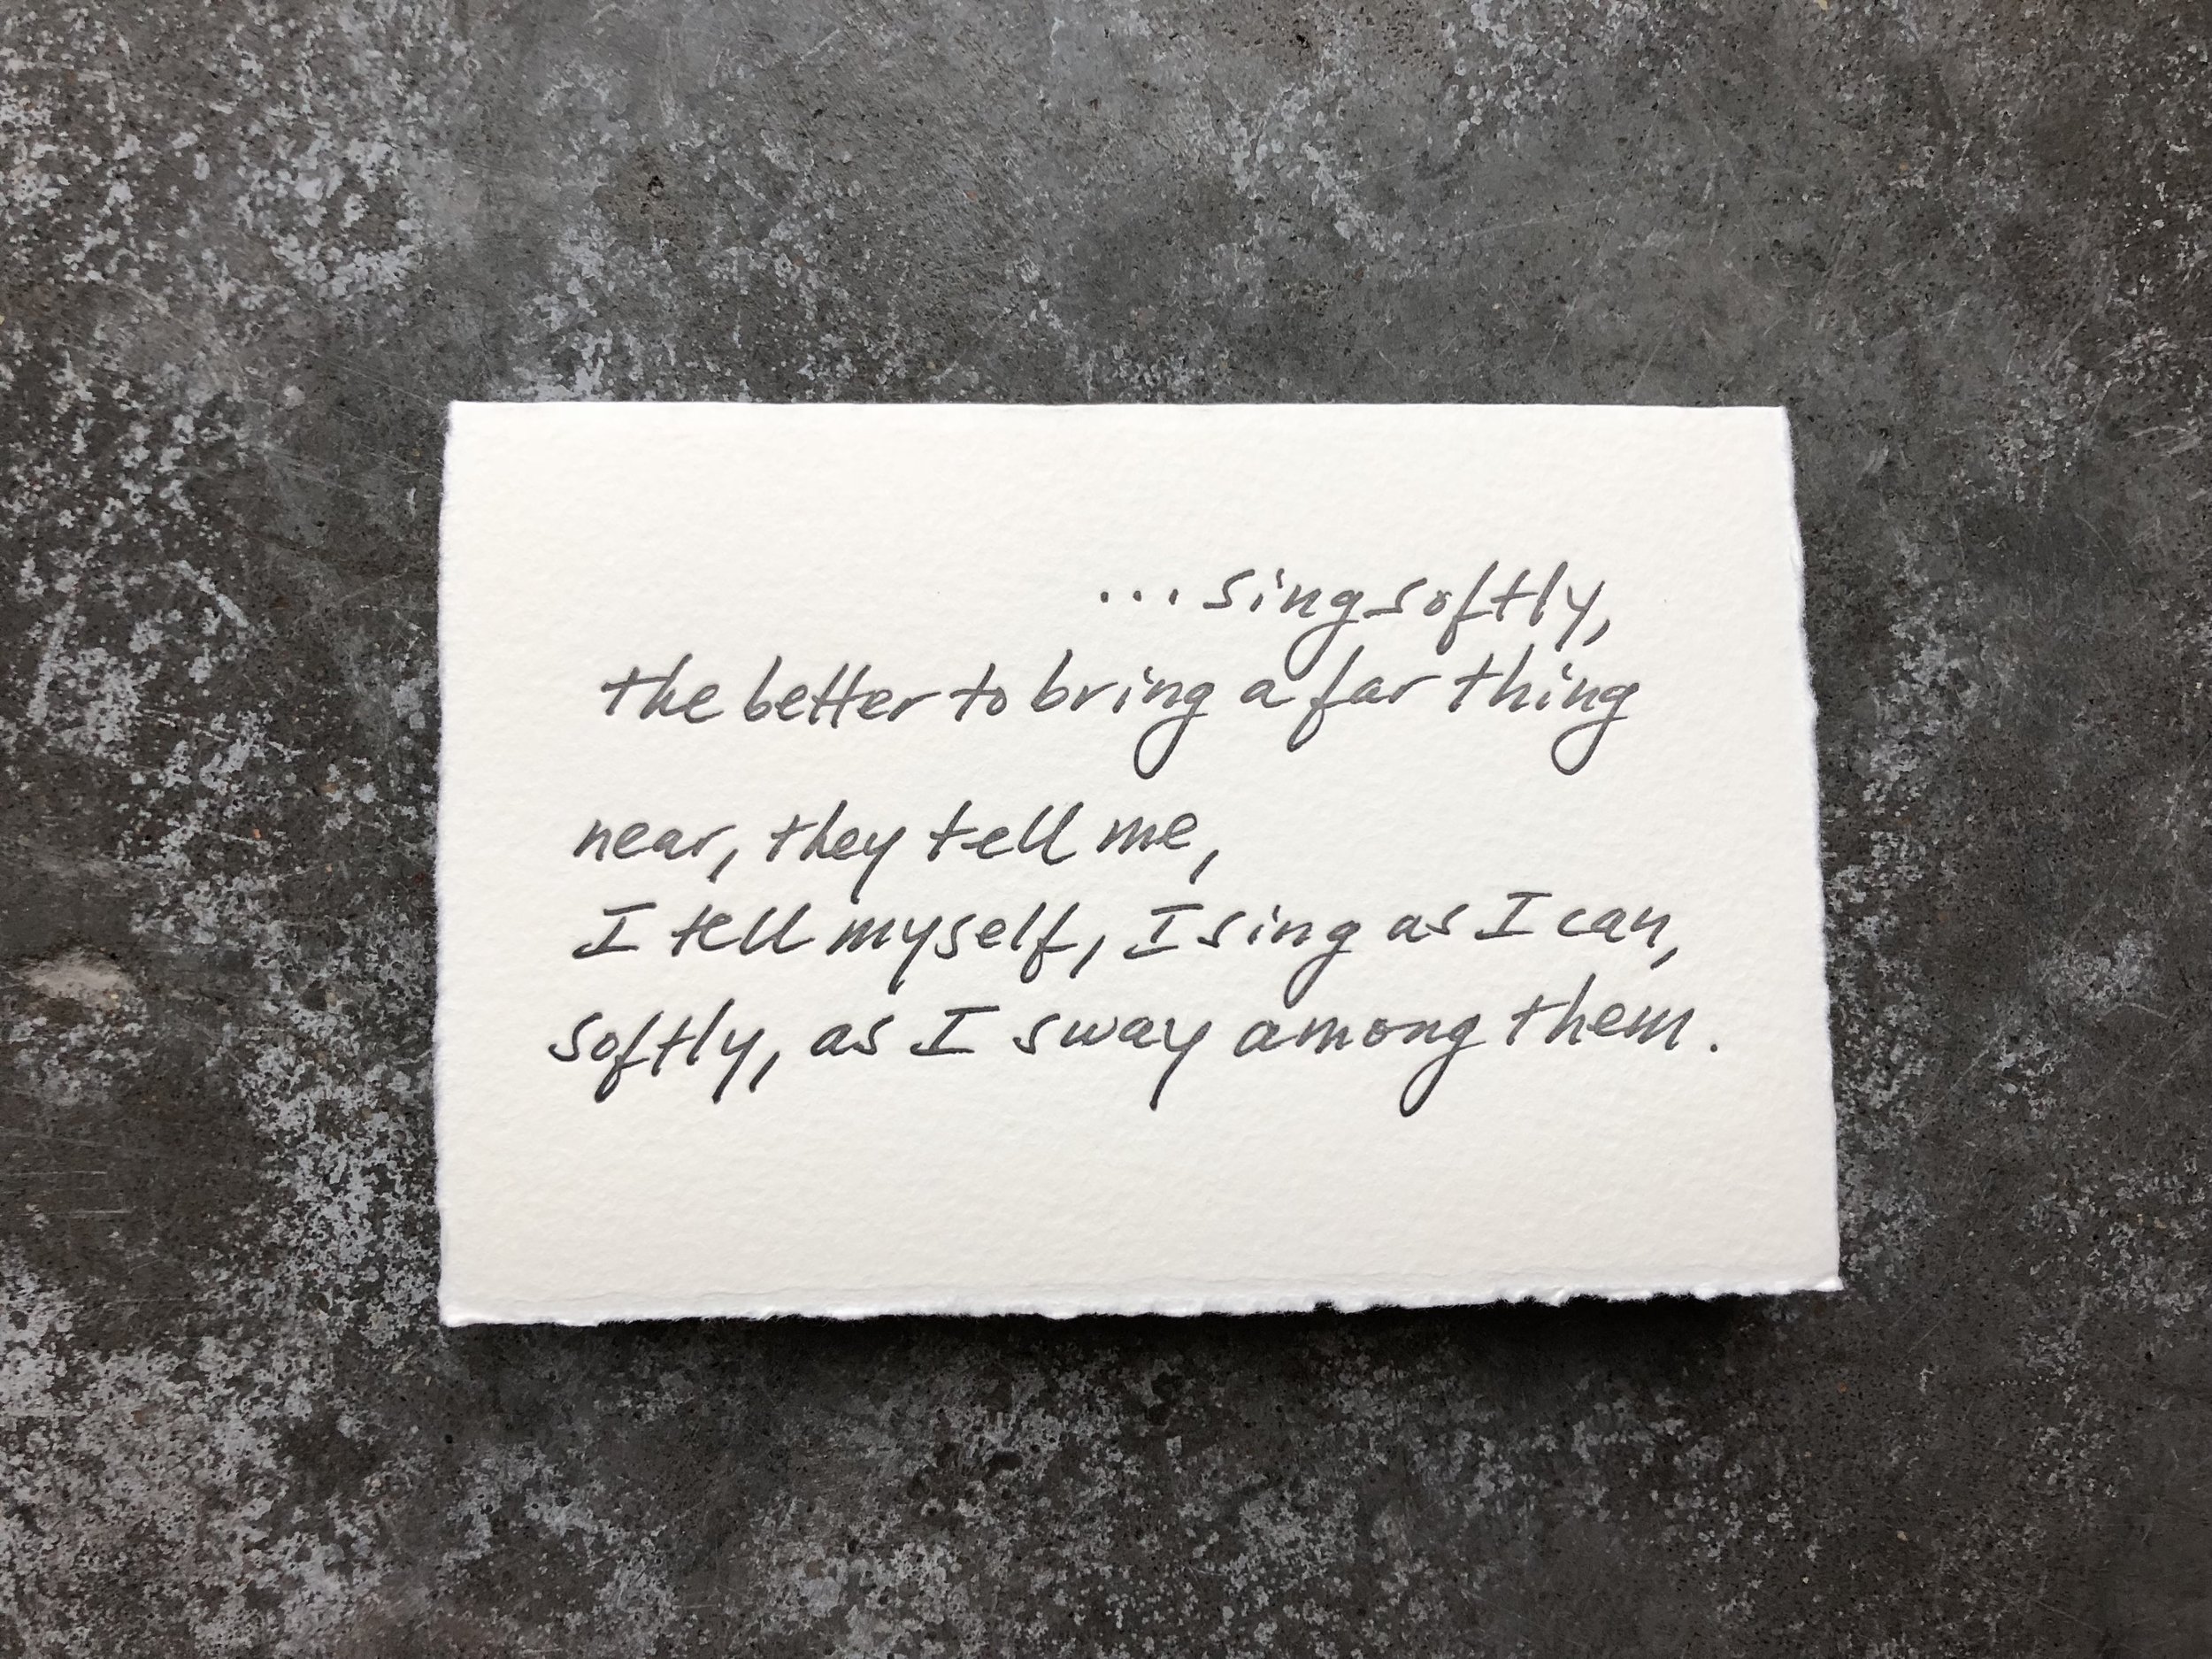 ...sing softly,
the better to bring a far thing
near, they tell me,
I tell myself, I sing as I can,
softly, as I sway among them.